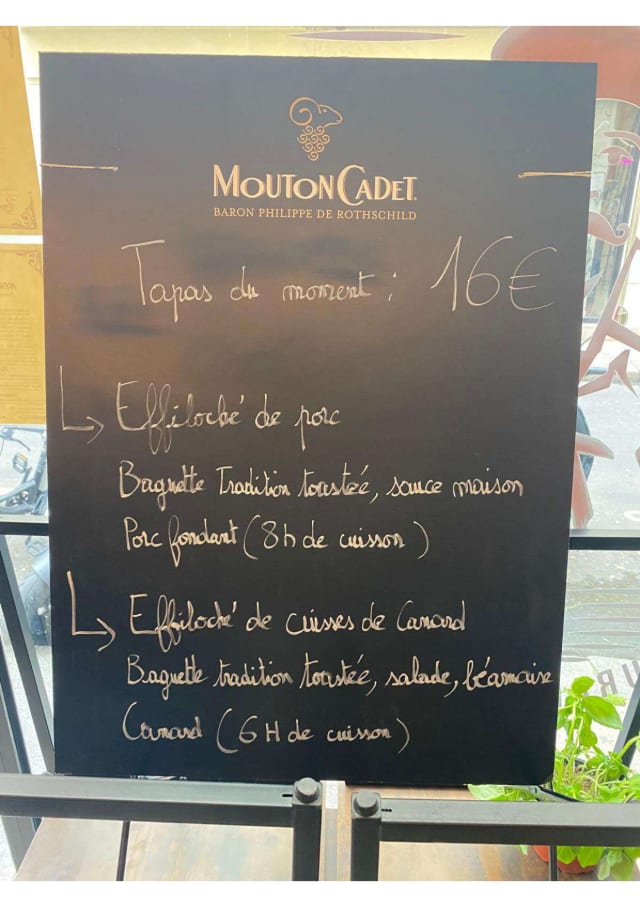 MOUTON CADET
BARON PHILIPPE DE ROTHSCHILD
Tapas du moment : 16€
Effiloché de porc
Baguette Tradition toastée, sauce maison
Porc fondant (8h de cuisson)
Effiloché de cuisses de Canard
Baguette tradition toastée, salade, béarnaise
Canard (6H de cuisson)